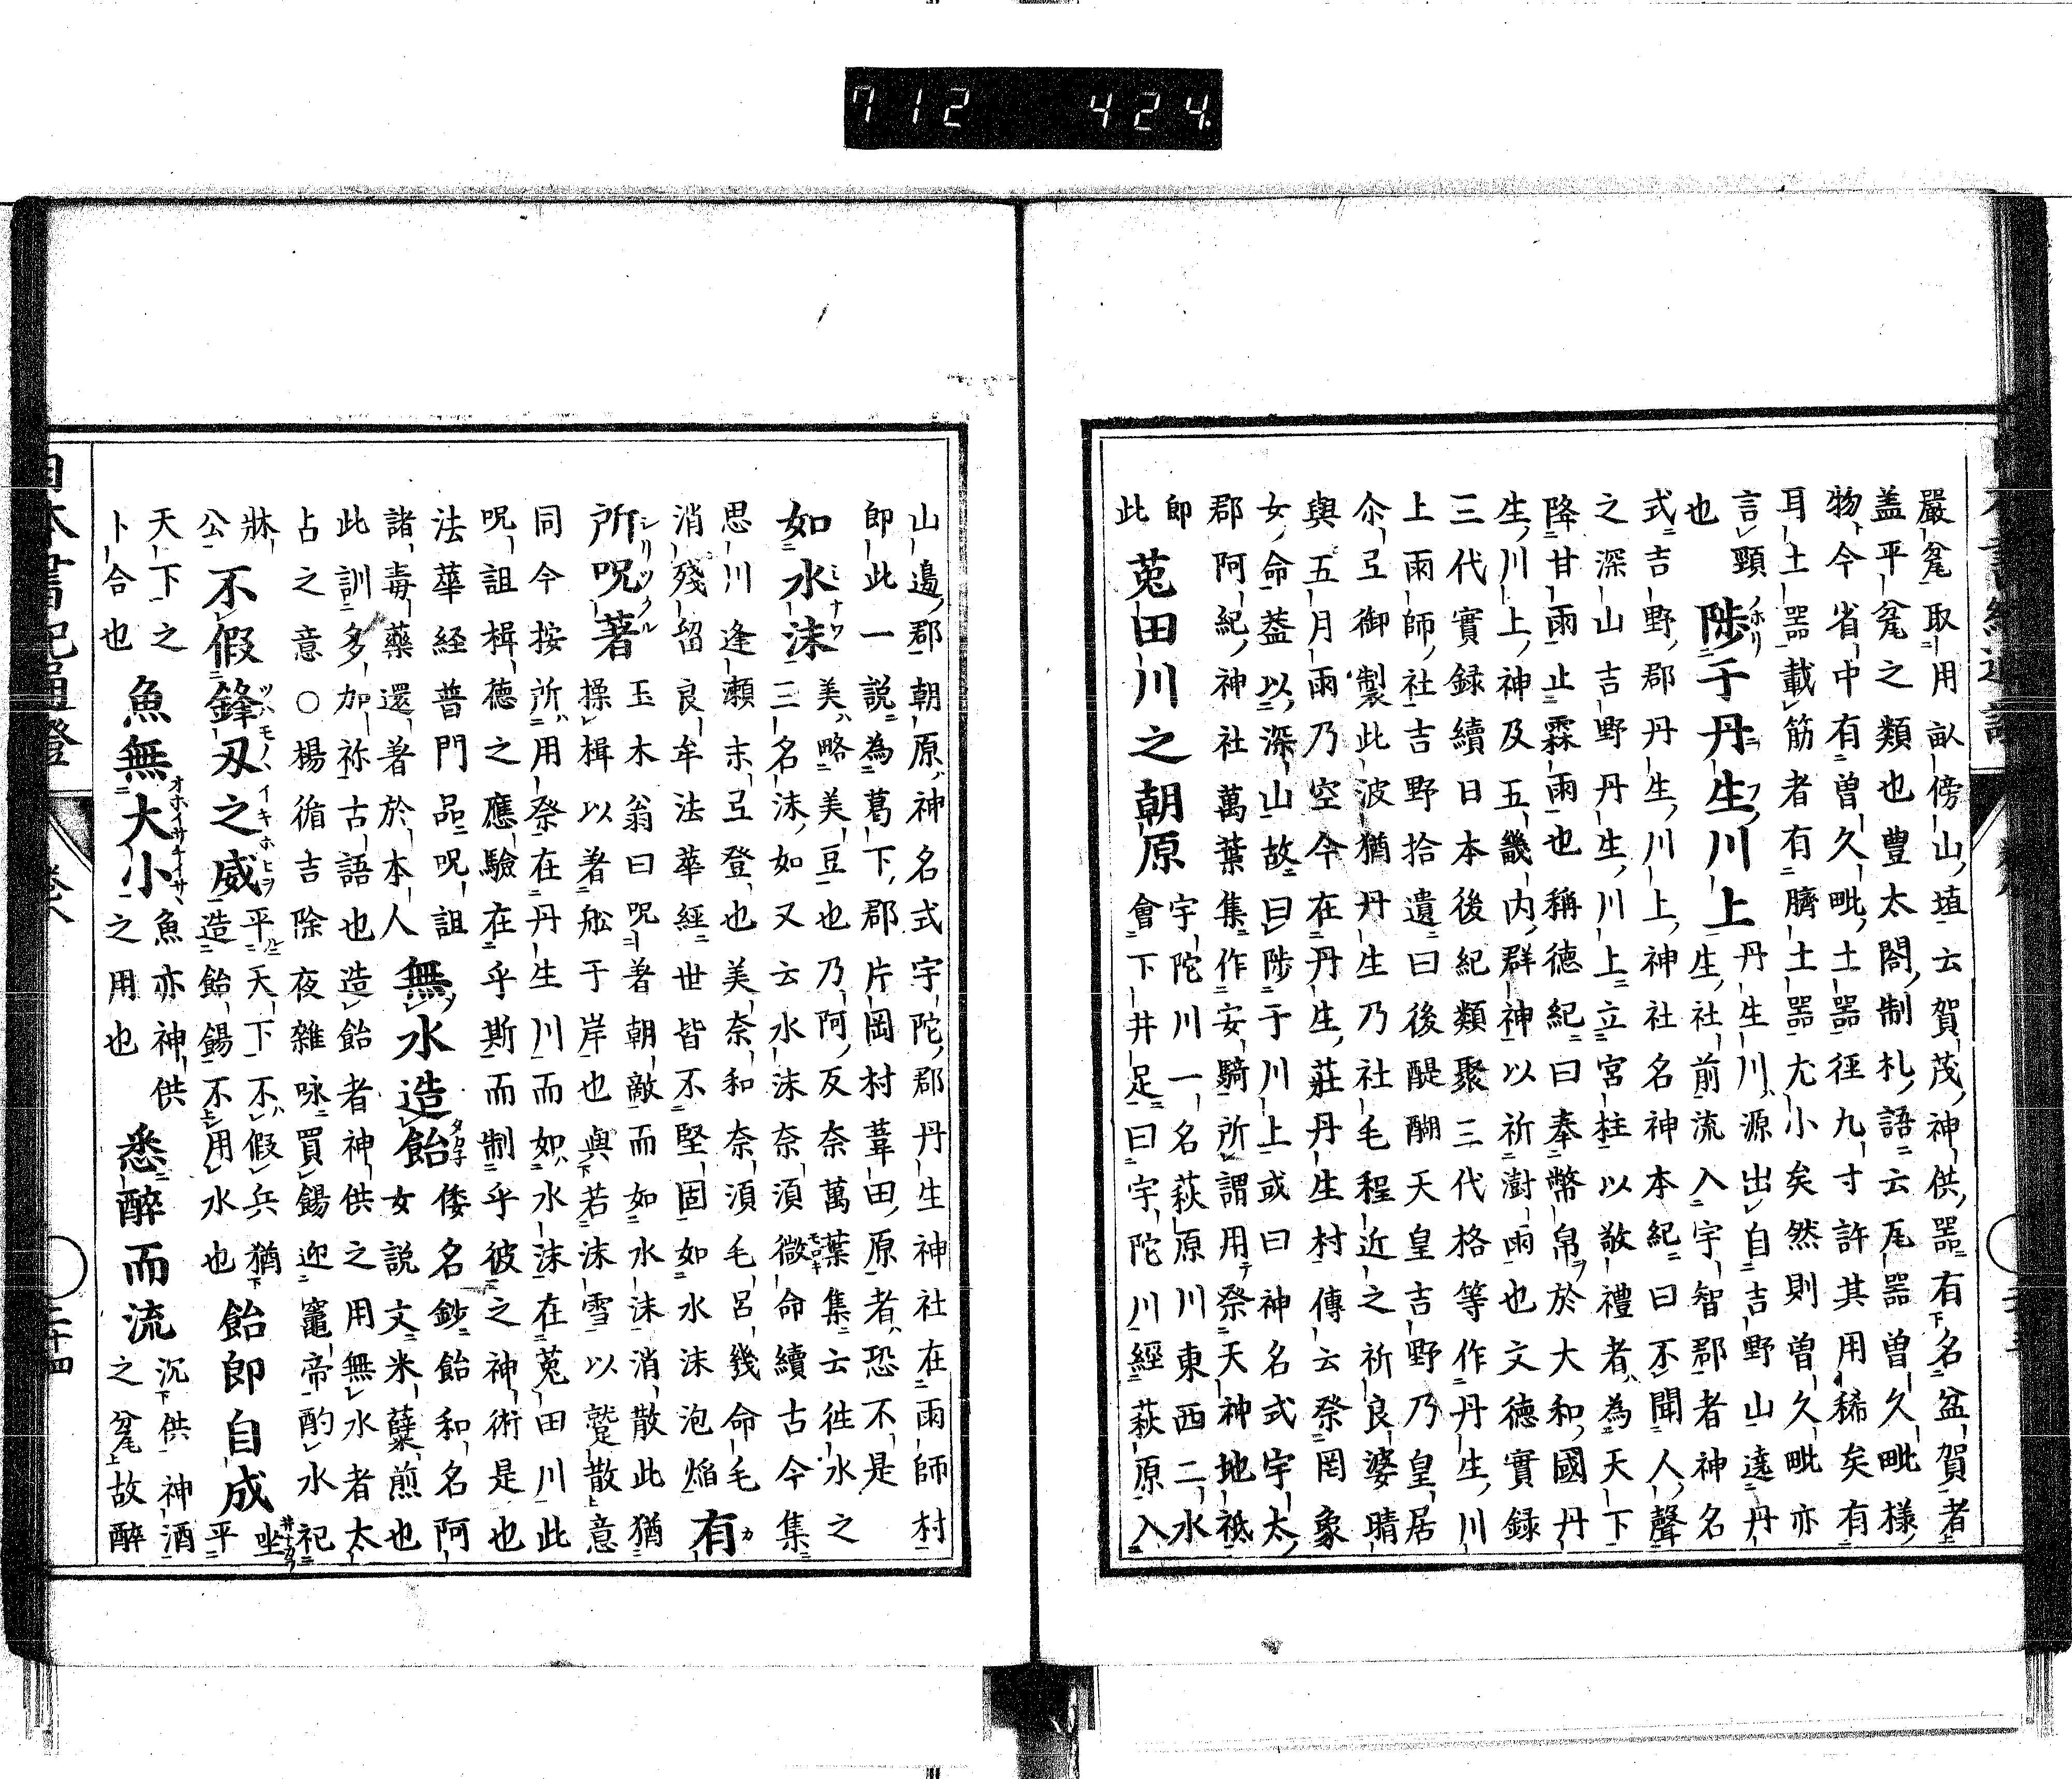 712 424.
嚴瓮取用畝傍山埴云賀茂神供器有名盆賀者
盖平瓮之類也豊太閤制札語云瓦器曽久毗様
物今省中有曽久毗土器徑九寸許其用稀矣有
耳土器載筋者有臍土器尢小矣然則曽久毗亦
言頸
也
陟于丹生川上
丹生川源出自吉野山遠丹
生社前流入宇智郡者神名
式吉野郡丹生川上神社名神本紀曰不聞人聲
之深山吉野丹生川上立宮柱以敬禮者為天下
降甘雨止霖雨也稱德紀曰奉幣帛於大和國丹
生川上神及五畿内群神以祈澍雨也文德實録
三代實録續日本後紀類聚三代格等作丹生川
上雨師社吉野拾遺曰後醍醐天皇吉野乃皇居
尒弖御製此波猶丹生乃社毛程近之祈良婆晴
與五月雨乃空今在丹生莊丹生村傳云祭罔象
女命葢以深山故曰陟于川上或曰神名式宇太
郡阿紀神社萬葉集作安騎所謂用祭天神地祇
即
此
菟田川之朝原
宇陀川一名萩原川東西二水
會下井足曰宇陀川經萩原入
山邉郡朝原神名式宇陀郡丹生神社在雨師村
即此一説為葛下郡片岡村葦田原者恐不是
如水沫
美略美豆也乃阿反奈萬葉集云徃水之
三名沫如又云水沫奈湏微命續古今集
思川逢瀬末弖登也美奈和奈湏毛呂幾命毛
消殘留良牟法華經世皆不堅固如水沫泡焔
有
所呪著
玉木翁曰呪著朝敵而如水沫消散此猶
操楫以著舩于岸也與若沫雪以蹵散意
同今按所用祭在丹生川而如水沫在菟田川此
呪詛楫德之應驗在乎斯而制乎彼之神術是也
法華経普門品呪詛
諸毒藥還著於本人
無水造飴
倭名鈔飴和名阿
女説文米糵煎也
此訓多加祢古語也造飴者神供之用無水者太
占之意○楊循吉除夜雜咏買錫迎竈帝酌水祀
牀
公
不假鋒刃之威
平天下不假兵猶
造飴錫不用水也
飴即自成
坐
平
天下之
卜合也
魚無大小
魚亦神供
之用也
悉醉而流
沉供神酒
之瓮上故醉
日本書紀通證
卷八
二十四